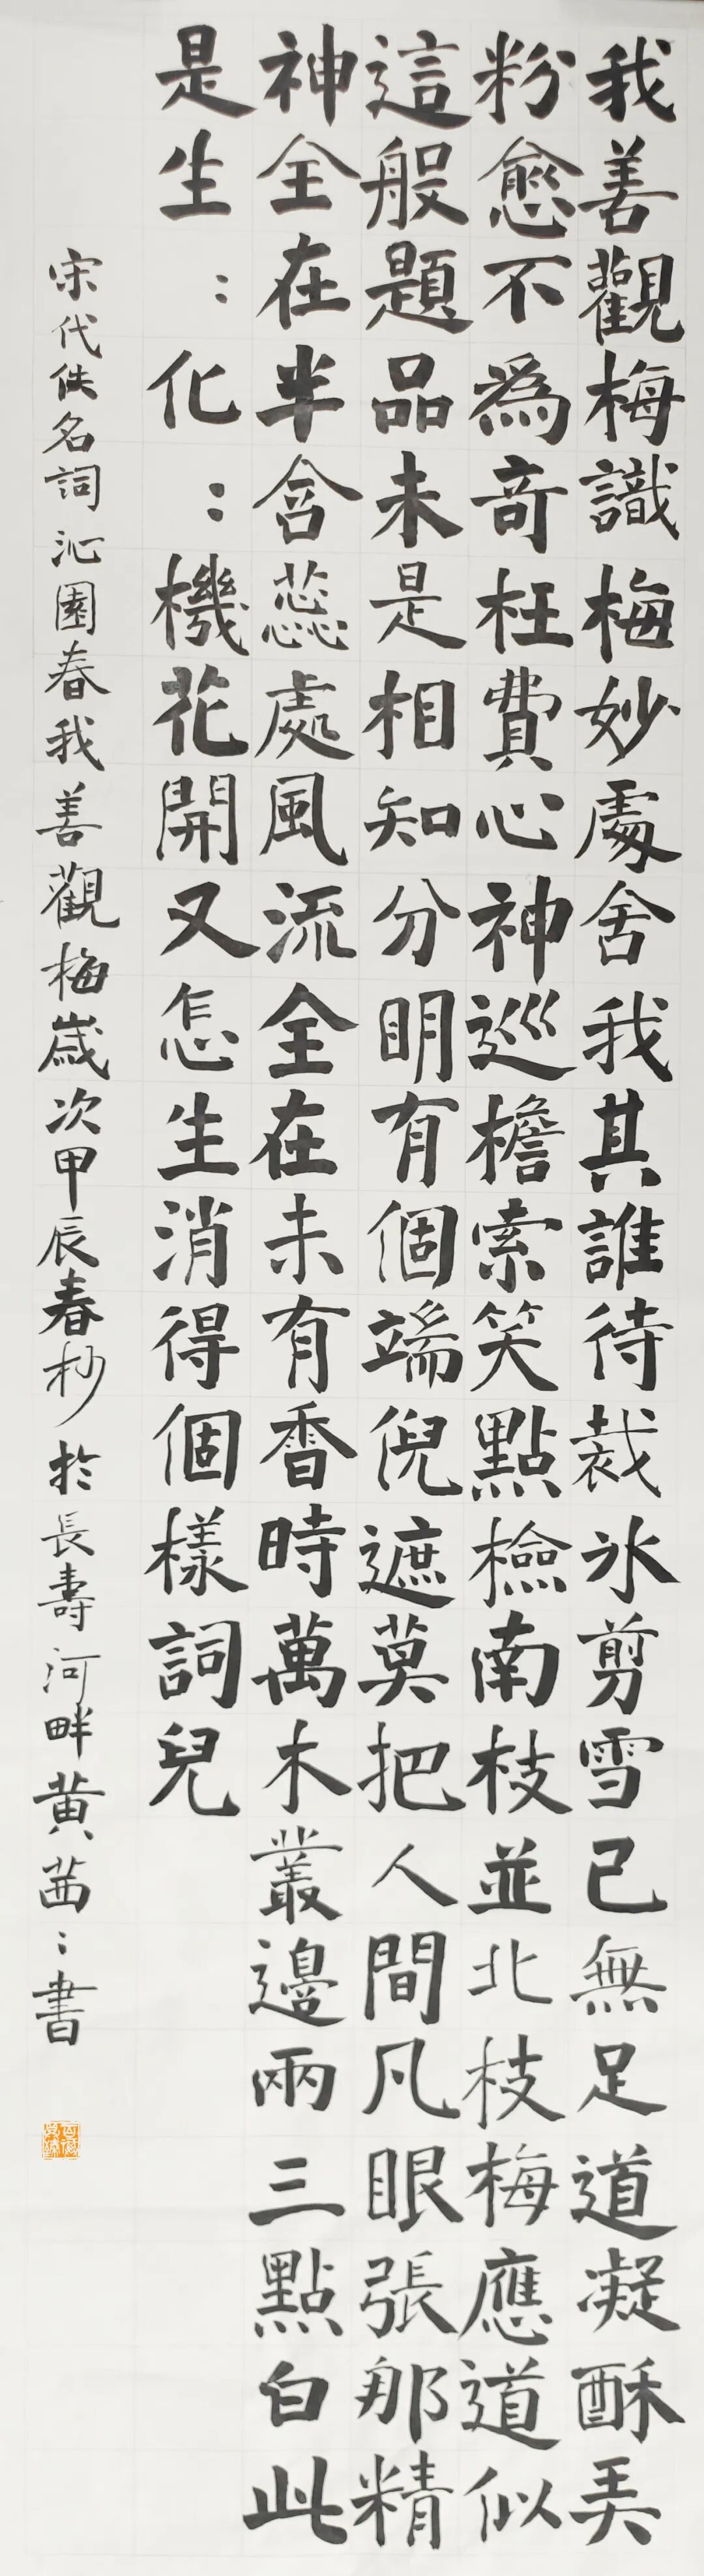 我善觀梅識梅妙處舍我其誰待裁氷剪雪已無足道凝酥弄
粉愈不為奇枉費心神巡檐索笑點檢南枝並北枝梅應道似
這般題品未是相知分明有個端倪遮莫把人間凡眼張那精
神全在半含蕊處風流全在未有香時萬木叢邊兩三點白此
是生：化：機花開又怎生消得個樣詞兒
宋代佚名詞沁園春我善觀梅歲次甲辰春杪於長壽河畔黄茜：書